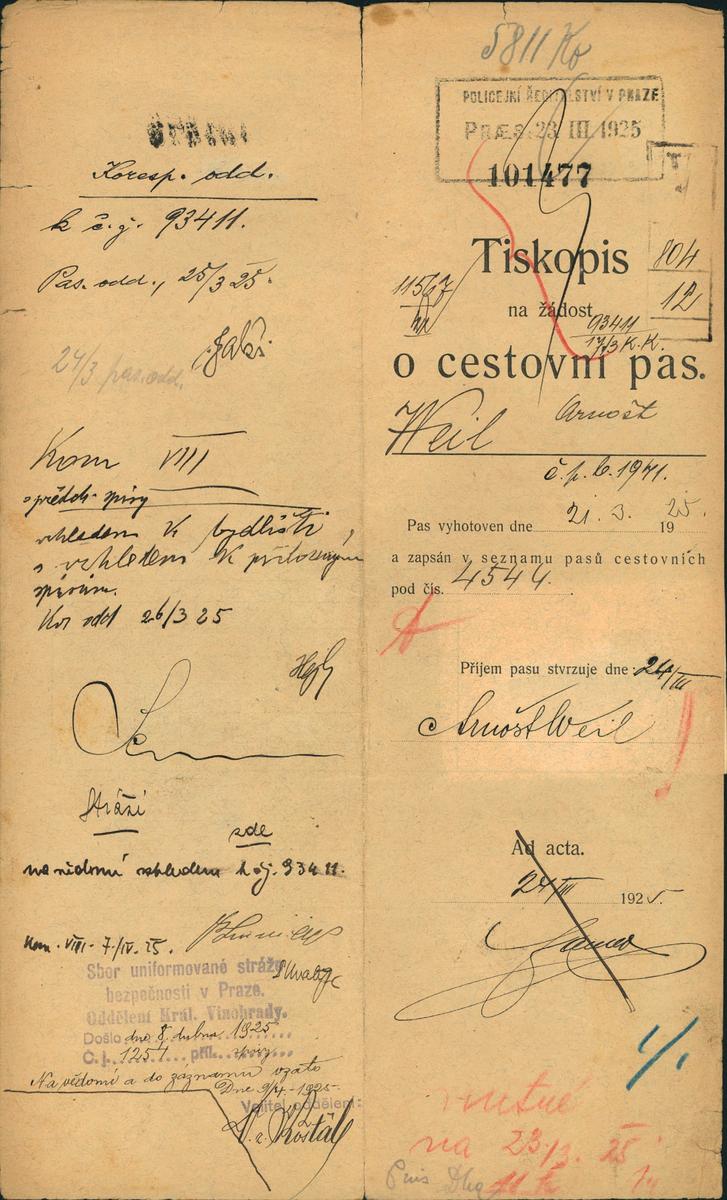 Koresp. odd.
k č.j. 93411.
Pas. odd., 25/3 25.
24/3 pas. odd.
Kom VIII
vzhledem k bydlišti,
vzhledem k přiloženým
spisům.
Kor odd 26/3 25
Stráži
zde
na vědomí vzhledem k čj. 93411.
Kom. VIII - 7./IV. 25.
Sbor uniformované stráže
bezpečnosti v Praze.
Oddělení Král. Vinohrady.
Došlo dne 8. dubna 1925
Č. j. 1251 příl. spisy
Na vědomí a do záznamu vzato
Dne 9/4 - 1925 -
Velitel oddělení:
Košťál
5811 Ko
POLICEJNÍ ŘEDITELSTVÍ V PRAZE
PRÆS. 23 III 1925
101477
Tiskopis
804
12
na žádost
93411
17/3 K.K.
o cestovní pas.
Weil Arnošt
Pas vyhotoven dne 21. 3. 1925.
a zapsán v seznamu pasů cestovních
pod čís. 4544.
Příjem pasu stvrzuje dne: 24/III
Arnošt Weil
Ad acta.
24/III 1925.
1/1
na 23./3. 25